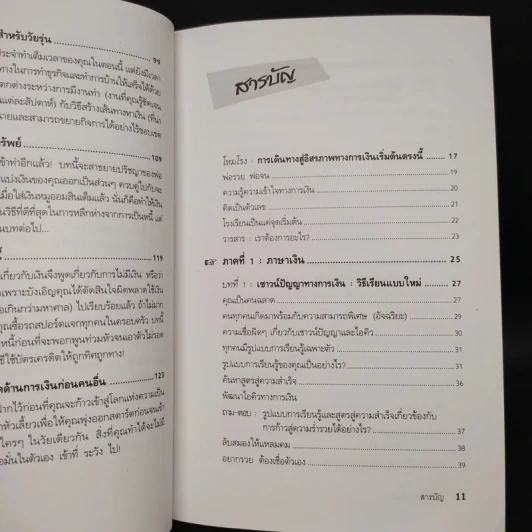 สำหรับวัยรุ่น 99
ประจำทำเต็มเวลาของคุณในตอนนี้ แต่ยังมีเวลา
ทางในการทำธุรกิจและทำการบ้านให้เสร็จได้ด้วย
แตกต่างระหว่างการมีงานทำ (งานที่คุณรู้ชัดเจน
แต่ละสัปดาห์) กับวิธีสร้างเส้นทางหาเงิน (ที่น่า
และสามารถขยายกิจการได้อย่างไร้ขอบเขต
ทรัพย์ 109
เข้าท่าอีกแล้ว! บทนี้จะสาขยายปรัชญาของพ่อ
แบ่งเงินของคุณออกเป็นส่วนๆ ควบคู่ไปกับจะ
เมื่อใส่เงินหมูออมสินเต็มแล้ว นั่นก็คือทำให้เงิน
วิธีที่ดีที่สุดในการหลีกห่างจากการเป็นหนี้ แต่
บทต่อไป...
119
เกี่ยวกับเงินจึงพูดเกี่ยวกับการไม่มีเงิน หรือว่า
เพราะบังเอิญคุณได้ตัดสินใจผิดพลาดใช้เงิน
เกินกว่ามหาศาล) ไปเรียบร้อยแล้ว ถ้าไม่มาก
คุณซื้อรถสปอร์ตแจกทุกคนในครอบครัว บทนี้
หนี้ก่อนที่จะพอกพูนท่วมหัวจนเอาตัวไม่รอด
ใช้บัตรเครดิตให้ถูกทิศถูกทาง!
ด้านการเงินก่อนคนอื่น 123
ฝากไว้ก่อนที่คุณจะก้าวเข้าสู่โลกแห่งความเป็น
หัวเลี้ยวเพื่อให้คุณพุ่งออกสตาร์ตก่อนจะเข้า
ใครๆ ในวัยเดียวกัน สิ่งที่คุณทำได้จะไม่มี
มั่นในตัวเอง เข้าที่ ระวัง ไป!
สารบัญ
โหมโรง : การเดินทางสู่อิสรภาพทางการเงินเริ่มต้นตรงนี้ 17
พ่อรวย พ่อจน 19
ความรู้ความเข้าใจทางการเงิน 20
คิดเป็นตัวเลข 21
โรงเรียนเป็นแค่จุดเริ่มต้น 22
วารสาร : เราต้องการอะไร? 23
ภาคที่ 1 : ภาษาเงิน 25
บทที่ 1 : เชาวน์ปัญญาทางการเงิน : วิธีเรียนแบบใหม่ 27
คุณเป็นคนฉลาด 27
คนทุกคนเกิดมาพร้อมกับความสามารถพิเศษ (อัจฉริยะ) 29
ความเชื่อผิดๆ เกี่ยวกับเชาวน์ปัญญาและไอคิว 31
ทุกคนมีรูปแบบการเรียนรู้เฉพาะตัว 31
รูปแบบการเรียนรู้ของคุณเป็นอย่างไร? 31
ค้นหาสูตรสู่ความสำเร็จ 36
พัฒนาไอคิวทางการเงิน
ถาม-ตอบ : รูปแบบการเรียนรู้และสูตรสู่ความสำเร็จเกี่ยวข้องกับ
การก้าวสู่ความร่ำรวยได้อย่างไร? 37
ลับสมองให้แหลมคม 38
อยากรวย ต้องเชื่อตัวเอง 39
สารบัญ 11